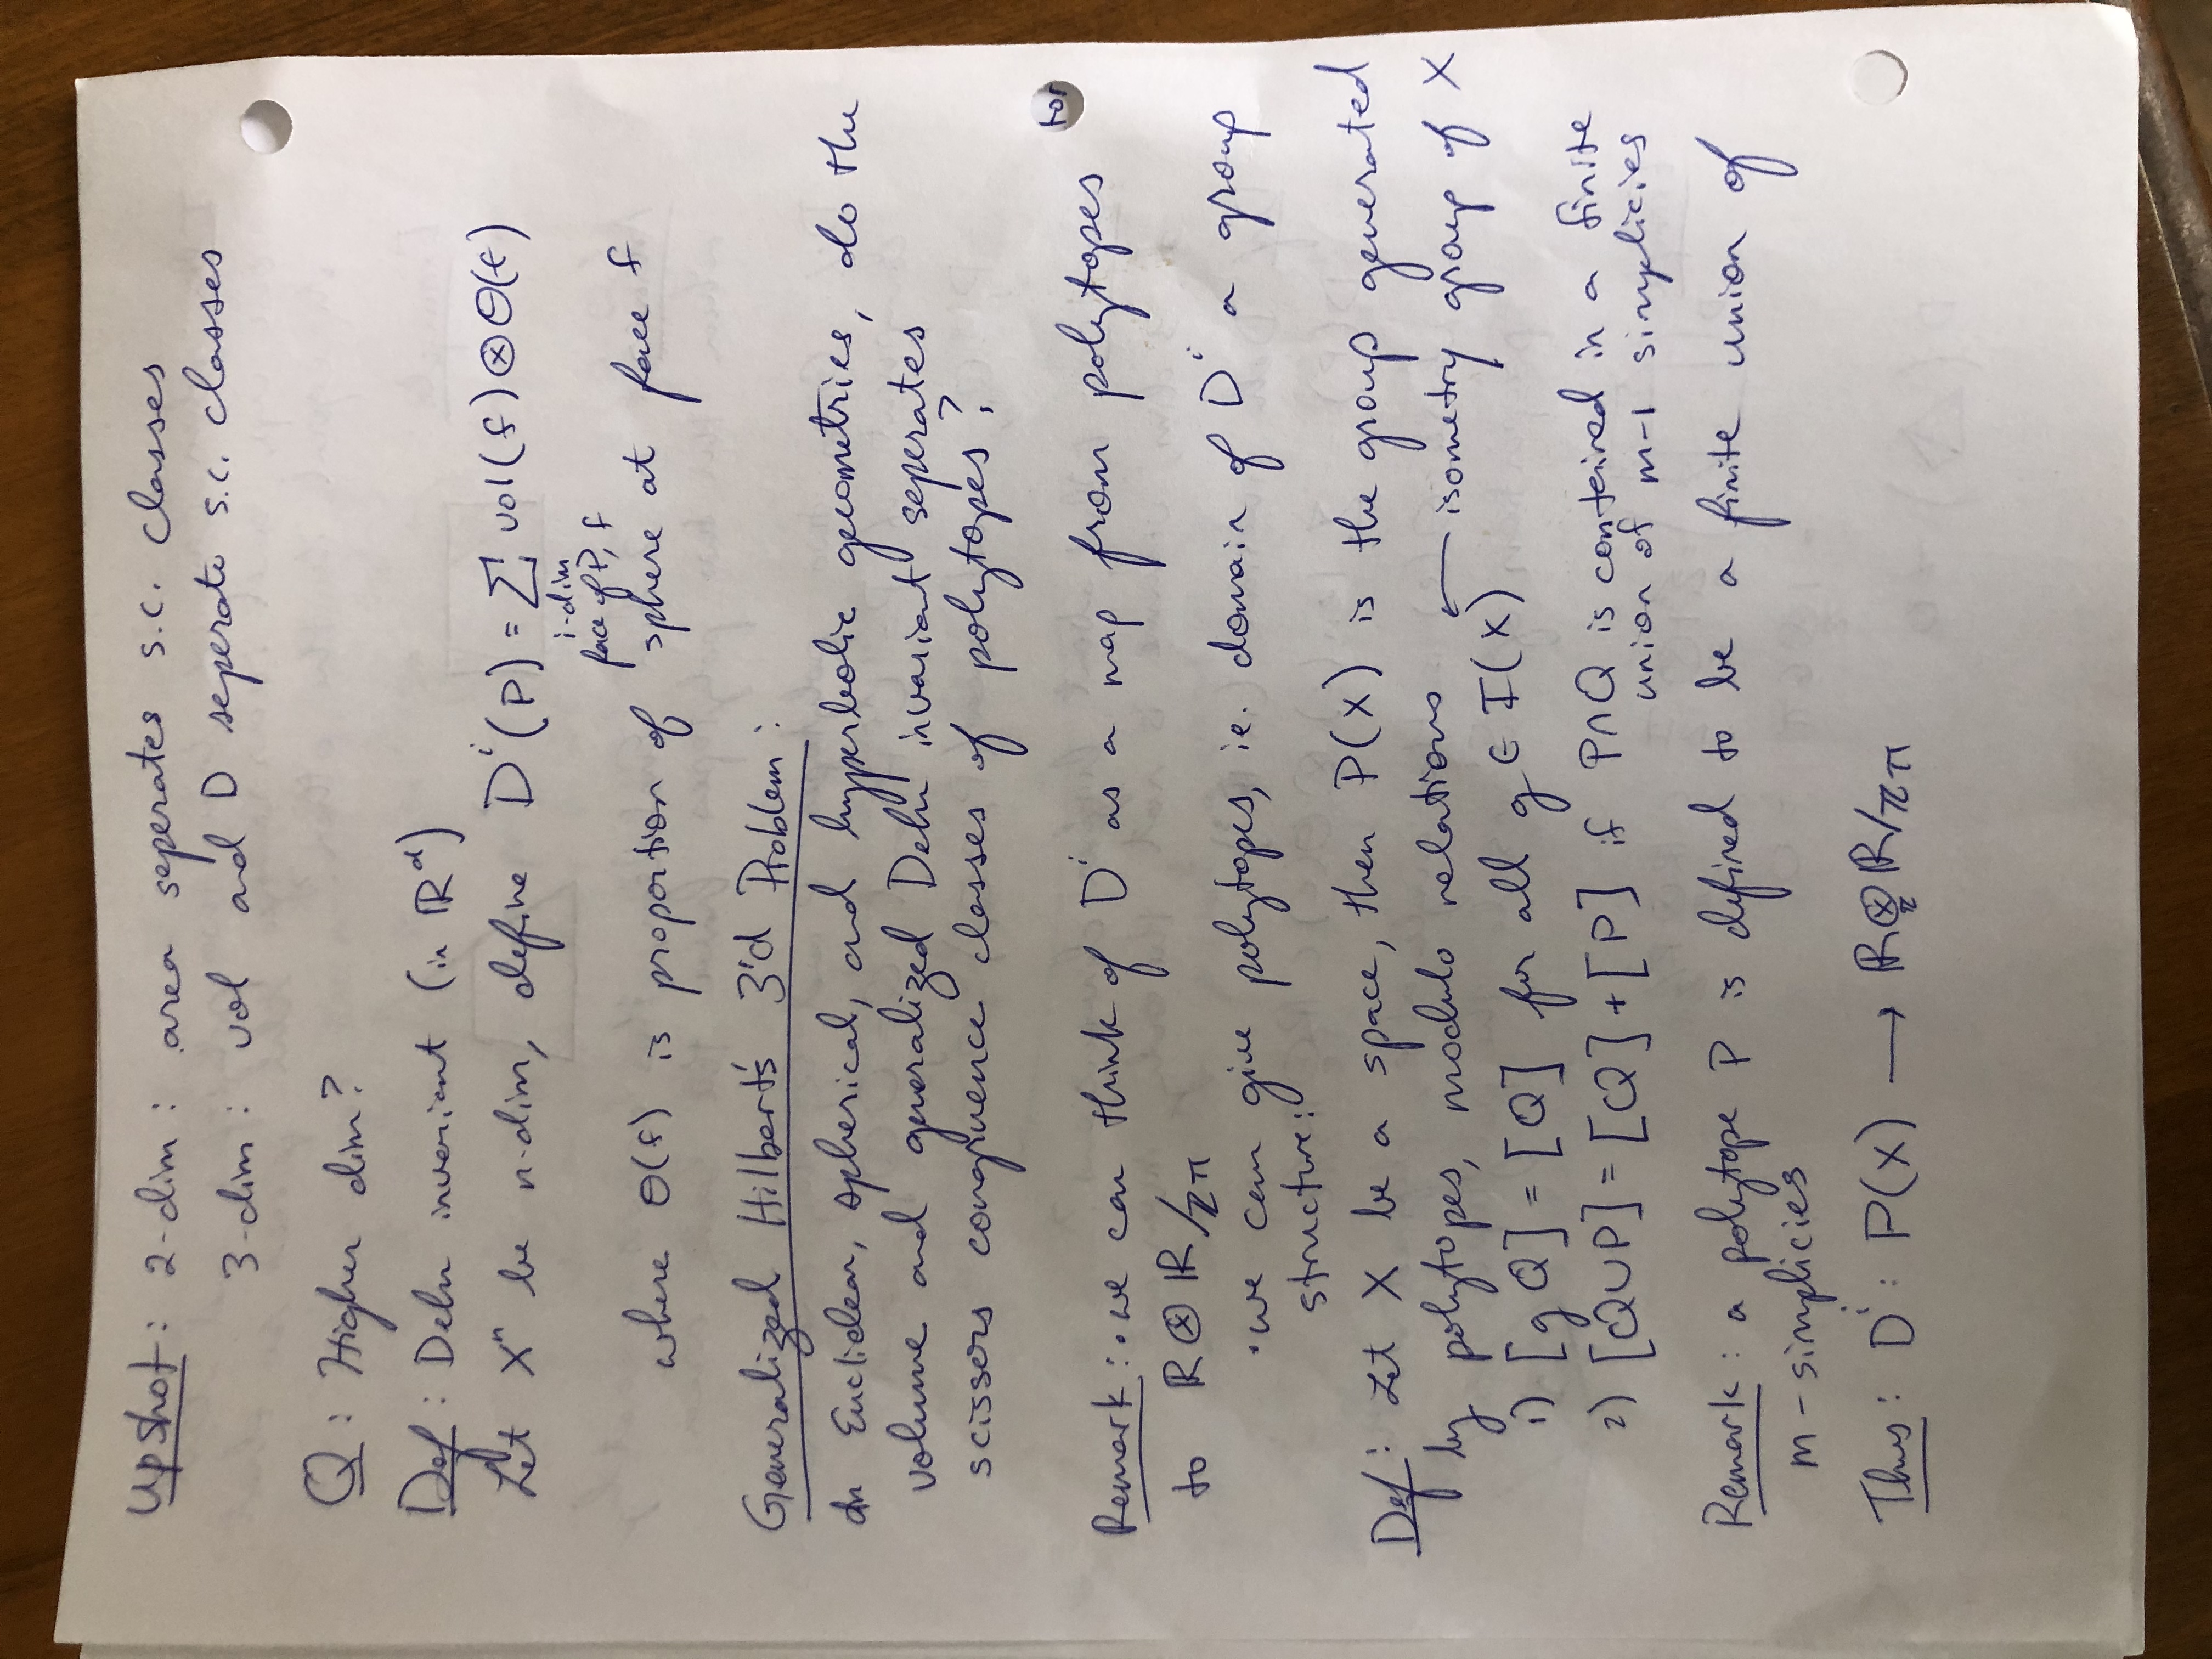 Upshot: 2-dim: area seperates s.c. classes
3-dim: vol and D seperate s.c. classes
Q: Higher dim?
Def: Dehn invariant (in ℝᵈ)
Let Xⁿ be n-dim, define Dⁱ(P) = ∑ vol(f) ⊗ Θ(f)
i-dim
face of P, f
where Θ(f) is proportion of sphere at face f
Generalized Hilbert's 3'd Problem:
In Euclidean, spherical, and hyperbolic geometries, do the
volume and generalized Dehn invariant seperates
scissors congruence classes of polytopes?
tor
Remark: • we can think of Dⁱ as a map from polytopes
to ℝ ⊗ ℝ/ℤπ
• we can give polytopes, ie. domain of Dⁱ a group
structure:
Def: Let X be a space, then P(X) is the group generated
by polytopes, modulo relations ← isometry group of X
1) [gQ] = [Q] for all g ∈ I(X)
2) [Q∪P] = [Q] + [P] if P∩Q is contained in a finite
union of m-1 simplicies
Remark: a polytope P is defined to be a finite union of
m-simplicies
Thus: Dⁱ: P(X) → ℝ ⊗_ℤ ℝ/ℤπ